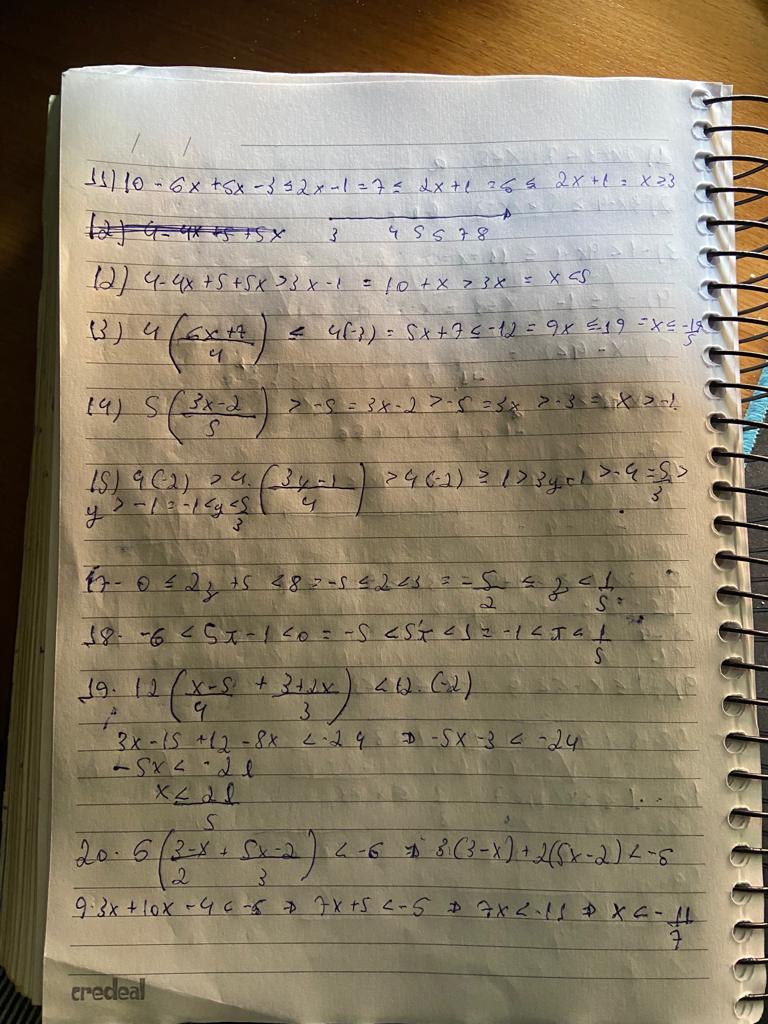 / /
11) 10 - 6x + 5x - 3 ≤ 2x - 1 = 7 ≤ 2x + 1 = 6 ≤ 2x + 1 = x ≥ 3
12) 4 - 4x + 5 + 5x 3 4 5 6 7 8
12) 4 - 4x + 5 + 5x > 3x - 1 = 10 + x > 3x = x < 5
13) 4 (6x + 7 / 4) ≤ 4(-3) = 5x + 7 ≤ -12 = 9x ≤ -19 = x ≤ -19/5
14) 5 (3x - 2 / 5) > -5 = 3x - 2 > -5 = 3x > -3 = x > -1
15) 4(-2) > 4. (3y - 1 / 4) > 4(-2) ≥ 1 > 3y - 1 > -4 = 5/3 >
y > -1 = -1 < y < 5/3
17- 0 ≤ 2z + 5 < 8 = -5 ≤ 2 < 3 = -5/2 ≤ z < 1/5
18. -6 < 5x - 1 < 0 = -5 < 5x < 1 = -1 < x < 1/5
19. 12 (x - 5 / 4 + 3 + 2x / 3) < 12. (-2)
3x - 15 + 12 - 8x < -24 ⇒ -5x - 3 < -24
-5x < -21
x < 21/5
20. 6 (3 - x / 2 + 5x - 2 / 3) < -6 ⇒ 3.(3 - x) + 2(5x - 2) < -6
9.3x + 10x - 4 < -6 ⇒ 7x + 5 < -6 ⇒ 7x < -11 ⇒ x < -11/7
credeal